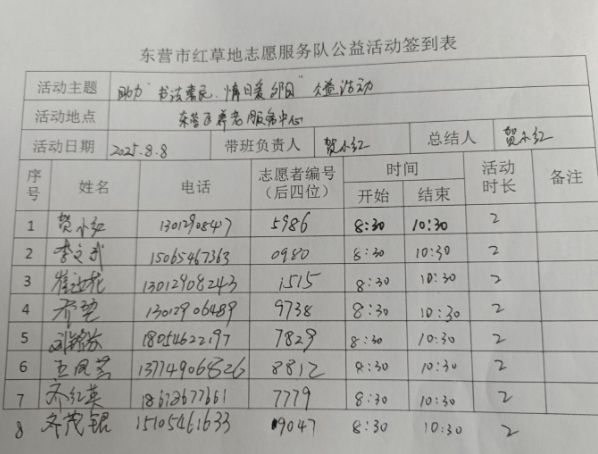 东营市红草地志愿服务队公益活动签到表
活动主题 助力“书法惠民·情暖 公益活动
活动地点 东营区养老服务中心
活动日期 2025.8.8 带班负责人 贺小红 总结人 贺小红
序号 姓名 电话 志愿者编号（后四位） 时间 开始 结束 活动时长 备注
1 贺小红 5986 8:30 10:30 2
2 李文武 15065467363 0980 8:30 10:30 2
3 13012908243 1515 8:30 10:30 2
4 乔堃 13012906489 9738 8:30 10:30 2
5 18054622197 7829 8:30 10:30 2
6 王凤芝 13774906826 8812 8:30 10:30 2
7 乔红英 18678677661 7779 8:30 10:30 2
8 齐茂银 15105461633 9047 8:30 10:30 2